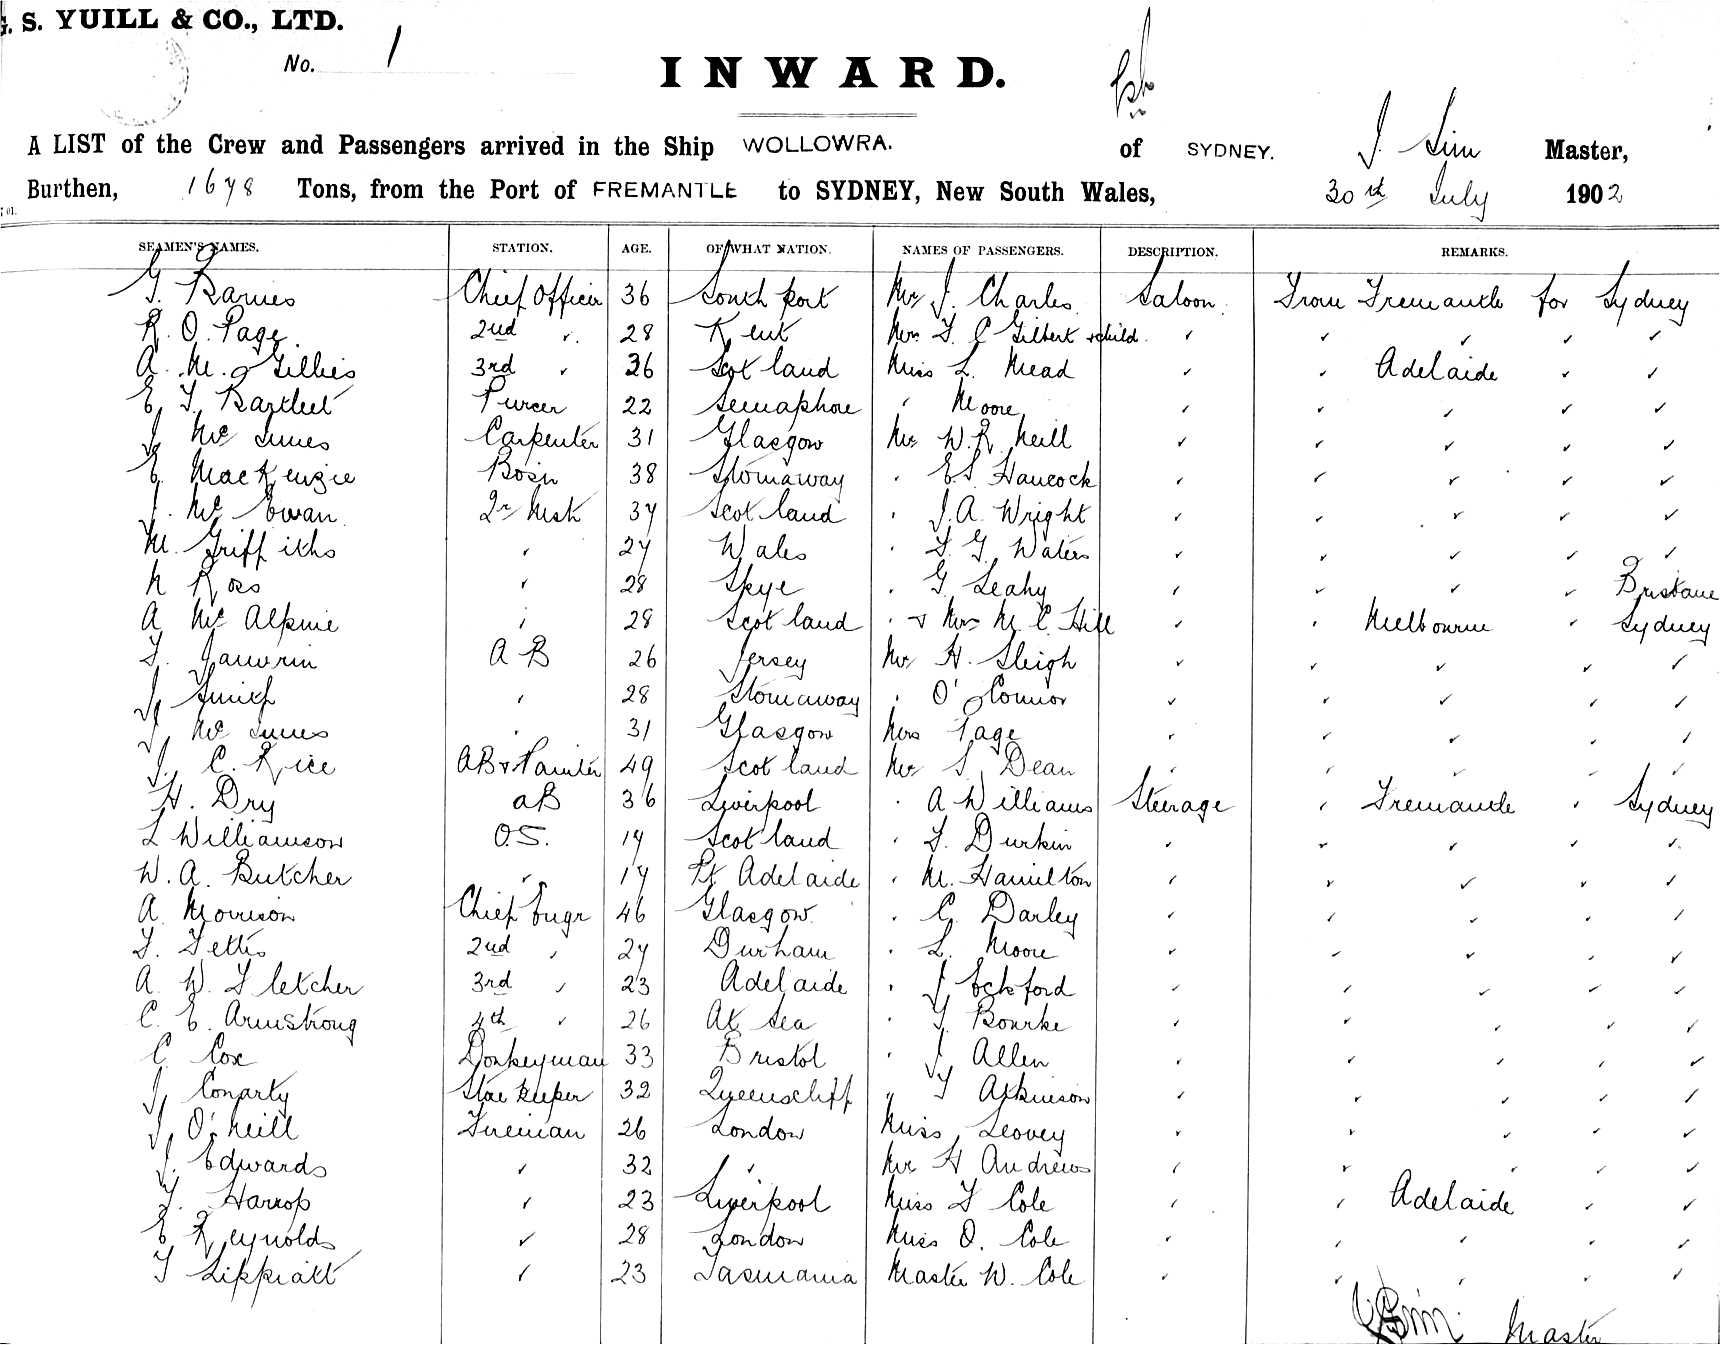 G. S. YUILL & CO., LTD.
No. 1
INWARD.
A LIST of the Crew and Passengers arrived in the Ship WOLLOWRA. of SYDNEY. J. Sim Master,
Burthen, 1678 Tons, from the Port of FREMANTLE to SYDNEY, New South Wales, 30th July 1902
SEAMEN'S NAMES. STATION. AGE. OF WHAT NATION. NAMES OF PASSENGERS. DESCRIPTION. REMARKS.
G. Barnes Chief Officer 36 South port Mr J. Charles Saloon. From Fremantle for Sydney
R. O. Page 2nd " 28 Kent Mrs F. C Gilbert & child " " " " "
A. M. Gillies 3rd " 26 Scotland Miss L. Mead " " Adelaide " "
E. T. Bartlett Purcer 22 Semaphore " Moore " " " " "
J. McInnes Carpenter 31 Glasgow Mr W. R. Neill " " " " "
E. MacKenzie Bosn 38 Stornaway " E. S. Hancock " " " " "
J. McEwan Qr Mstr 37 Scotland " J. A. Wright " " " " "
M. Griffiths " 27 Wales " F. G. Waters " " " " "
N Ross " 28 Skye " G. Leahy " " " " Brisbane
A McAlpine " 28 Scotland " & Mrs M. C. Hill " " Melbourne " Sydney
F. Jauvrin A B 26 Jersey Mr H. Sleigh " " " " "
J. Smith " 28 Stornaway " O'Connor " " " " "
J. McInnes " 31 Glasgow Mrs Page " " " " "
J. C. Rice AB & Painter 49 Scotland Mr S. Dean " " " " "
H. Dry AB 36 Liverpool " A Williams Steerage " Fremantle " Sydney
L Williamson O.S. 17 Scotland " F. Durkin " " " " "
W. A. Butcher " 17 Pt Adelaide " M. Hamilton " " " " "
A. Morrison Chief Engr 46 Glasgow " C. Darley " " " " "
F. Tettis 2nd " 27 Durham " L. Moore " " " " "
A. W. Fletcher 3rd " 23 Adelaide " J. Eckford " " " " "
C. E. Armstrong 4th " 26 At Sea " T. Bourke " " " " "
C Cox Donkeyman 33 Bristol " J. Allen " " " " "
J. Conarty Storekeeper 32 Queenscliff " T Atkinson " " " " "
J. O'Neill Fireman 26 London Miss Leovey " " " " "
J. Edwards " 32 " Mr H Andrews " " " " "
T. Harrop " 23 Liverpool Miss F Cole " " Adelaide " "
E Reynolds " 28 London Miss O. Cole " " " " "
T Lippiatt " 23 Tasmania Master W. Cole " " " " "
J Sim. Master